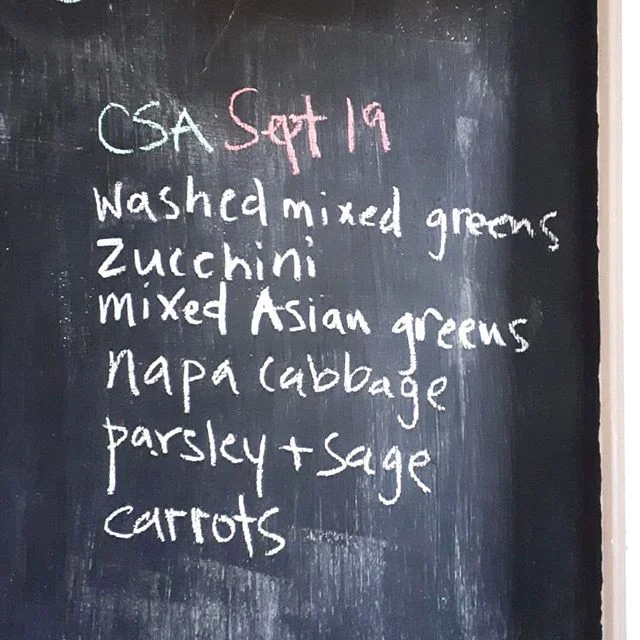 CSA Sept 19
washed mixed greens
Zucchini
mixed Asian greens
napa cabbage
parsley + sage
carrots